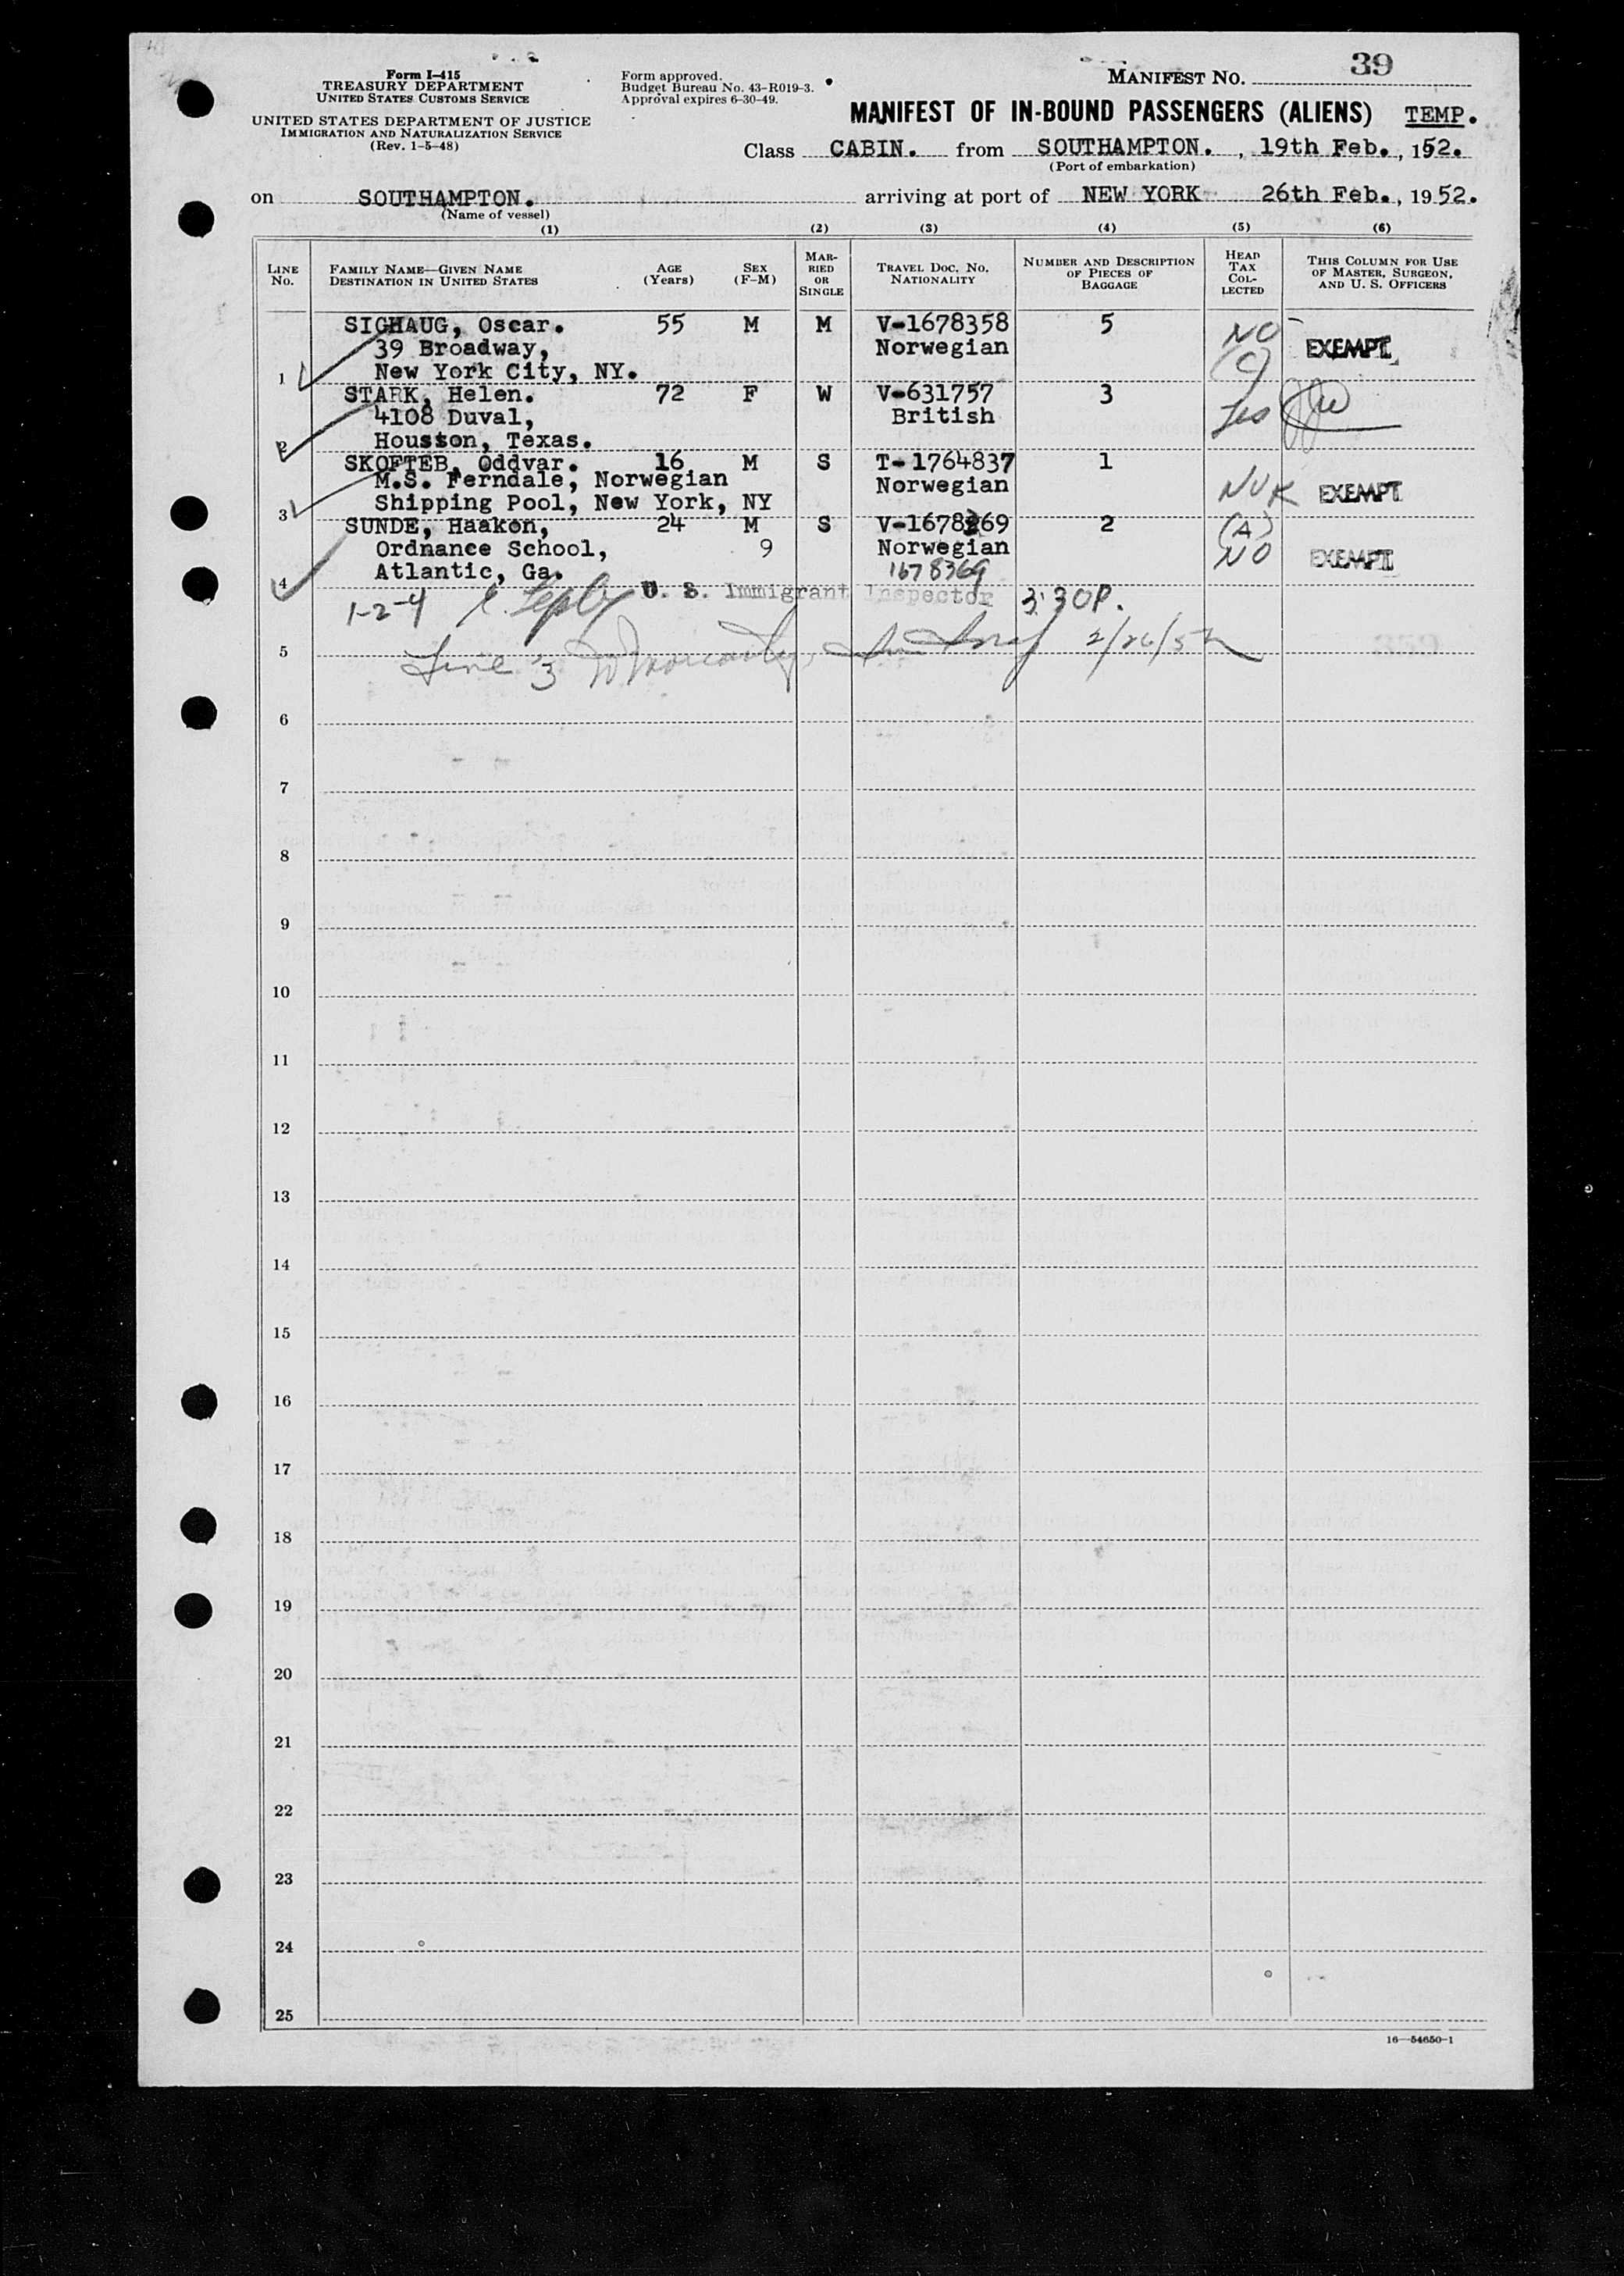 39
Form I-415
TREASURY DEPARTMENT
UNITED STATES CUSTOMS SERVICE
UNITED STATES DEPARTMENT OF JUSTICE
IMMIGRATION AND NATURALIZATION SERVICE
(Rev. 1-5-48)
Form approved.
Budget Bureau No. 43-R019-3.
Approval expires 6-30-49.
MANIFEST NO.
MANIFEST OF IN-BOUND PASSENGERS (ALIENS) TEMP.
Class CABIN. from SOUTHAMPTON. , 19th Feb. , 1952.
(Port of embarkation)
on SOUTHAMPTON. arriving at port of NEW YORK 26th Feb. , 1952.
(Name of vessel)
(1) (2) (3) (4) (5) (6)
LINE NO. FAMILY NAME—GIVEN NAME DESTINATION IN UNITED STATES AGE (Years) SEX (F-M) MARRIED OR SINGLE TRAVEL DOC. NO. NATIONALITY NUMBER AND DESCRIPTION OF PIECES OF BAGGAGE HEAD TAX COLLECTED THIS COLUMN FOR USE OF MASTER, SURGEON, AND U. S. OFFICERS
SIGHAUG, Oscar. 55 M M V-1678358 5 NO
39 Broadway, Norwegian (C) EXEMPT
1 New York City, NY.
STARK, Helen. 72 F W V-631757 3
4108 Duval, British Yes
2 Housson, Texas.
SKOFTEB, Oddvar. 16 M S T-1764837 1
M.S. Ferndale, Norwegian Norwegian EXEMPT
3 Shipping Pool, New York, NY
SUNDE, Haakon, 24 M S V-1678369 2 (A)
Ordnance School, 9 Norwegian NO EXEMPT
4 Atlantic, Ga. 1678369
1-2-4 U. S. Immigrant Inspector 3:30P.
5 Line 3 2/26/52
6
7
8
9
10
11
12
13
14
15
16
17
18
19
20
21
22
23
24
25
16—54650-1